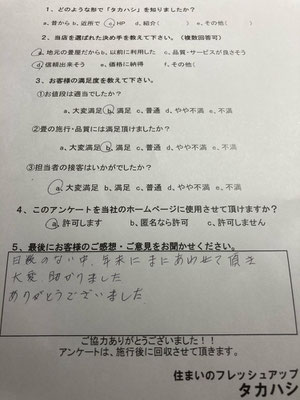 1、どのような形で「タカハシ」を知りましたか？
a、昔から b、近所で c、HP d、紹介( ) e、その他( )
2、当店を選ばれた決め手を教えて下さい。（複数回答可）
a、地元の畳屋だから b、以前に利用した c、品質・サービスが良さそう
d、信頼出来そう e、価格に納得 f、その他( )
3、お客様の満足度を教えて下さい。
①お値段は適当でしたか？
a、大変満足 b、満足 c、普通 d、やや不満 e、不満
②畳の施行・品質には満足頂けましたか？
a、大変満足 b、満足 c、普通 d、やや不満 e、不満
③担当者の接客はいかがでしたか？
a、大変満足 b、満足 c、普通 d、やや不満 e、不満
4、このアンケートを当社のホームページに使用させて頂けますか？
a、許可します b、匿名なら許可 c、許可しません
5、最後にお客様のご感想・ご意見をお聞かせください。
日程のない中、年末にまにあわせて頂き
大変助かりました
ありがとうございました
ご協力ありがとうございました！！
アンケートは、施行後に回収させて頂きます。
住まいのフレッシュアップ
タカハシ